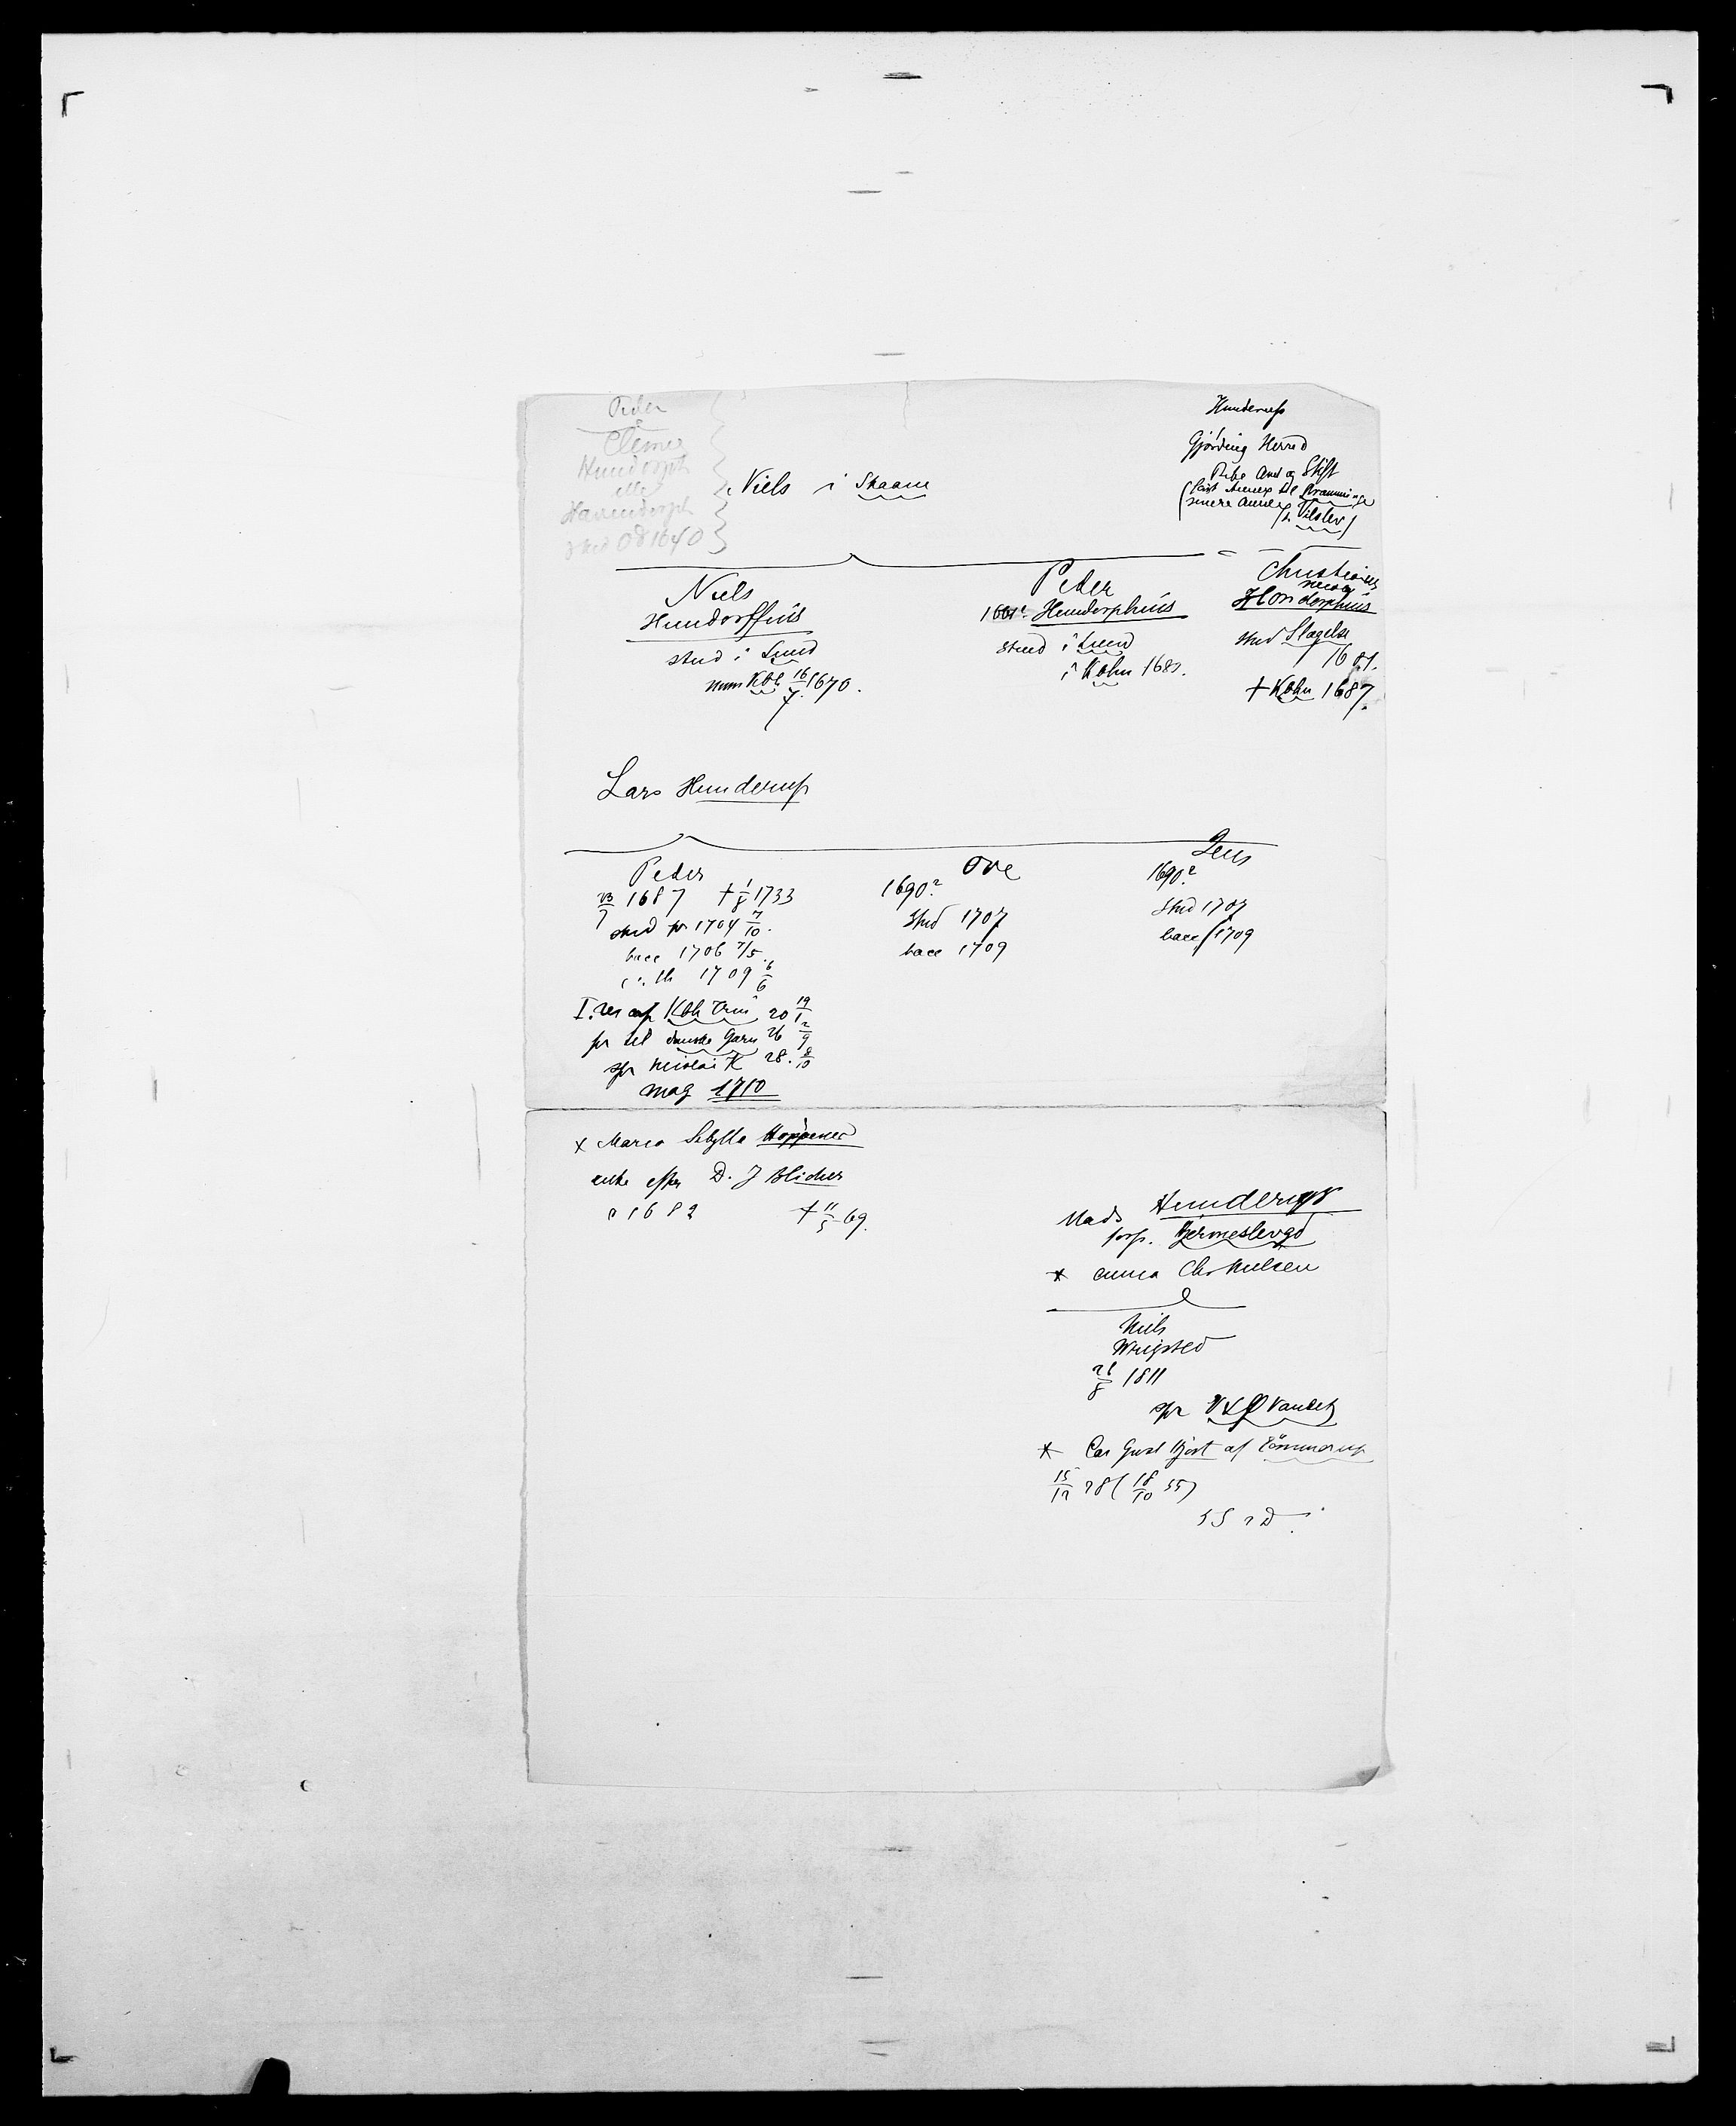 Peder
Clemes
Hundorph
eller
stud Od 1640
Niels i Skaane
Hunderup
Gjørding Herred
Ribe Amt og Stift
(først Annex til Bramminge
senere Annex t. Vilslev)
Niels
Hundorffius
stud i Lund
imm Kbh 16/7 1670.
Peder
1661? Hundorphius
stud i Lund
i Kbhn 1681.
Christianus
Nicolai
Hondorphius
stud Slagelse
1681.
† Kbhn 1687.
Lars Hunderup
Peder
23/7 1687 † 1/8 1733
stud pr 1704 7/10.
bacc 1706 7/5.
c. th 1709 6/6
I. res cap Kbh Trin 20 19/1
pr ved danske Garn 26 2/9
spr Nicolai K 28. 8/10
mag 1710
Ove
1690?
stud 1707
bacc 1709
Jens
1690?
stud 1707
bacc 1709
x Maria Sibylla Hoppener
enke efter D. J Blicher
c 1682 † 11/5 69.
Mads Hunderup
forp. Bjermeslevgd
* Anna Chr Nielsen
Niels
Wrigsted
26/8 1811
spr V & Ø Vandet
* Car Gust Hjort af Tömmerup
15/12 28 (18/10 55)
5 S 2 D.